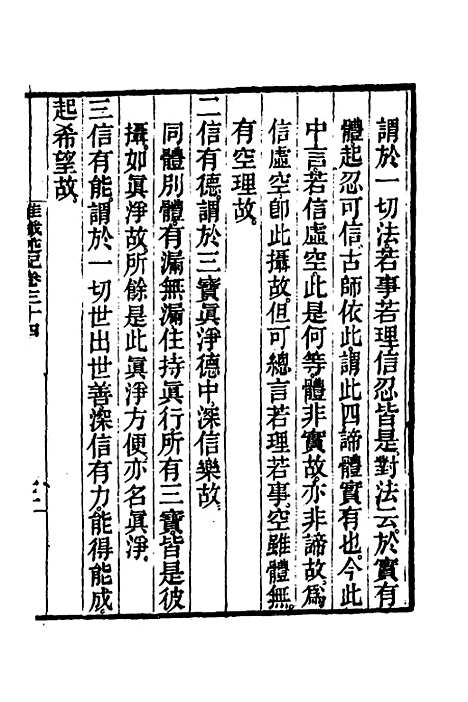 謂於一切法若事若理信忍皆是對法云於實有
體起忍可信古師依此謂此四諦體實有也今此
中言若信虛空此是何等體非實故亦非諦故爲
信虛空卽此攝故但可總言若理若事空雖體無
有空理故
二信有德謂於三寶眞淨德中深信樂故
同體別體有漏無漏住持眞行所有三寶皆是彼
攝如眞淨故所餘是此眞淨方便亦名眞淨
三信有能謂於一切世出世善深信有力能得能成
起希望故
唯識述記卷三十四